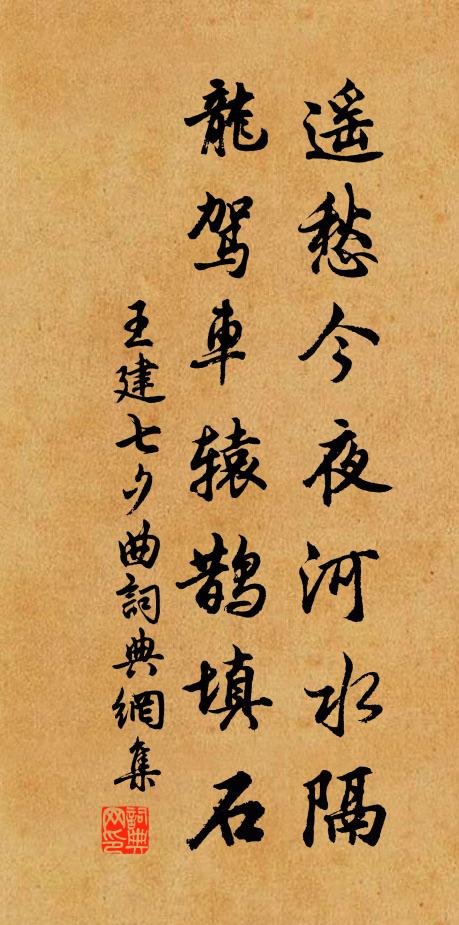 遥愁今夜河水隔
龍駕車辕鵲填石
王建七夕曲詞典網集
詞典網印